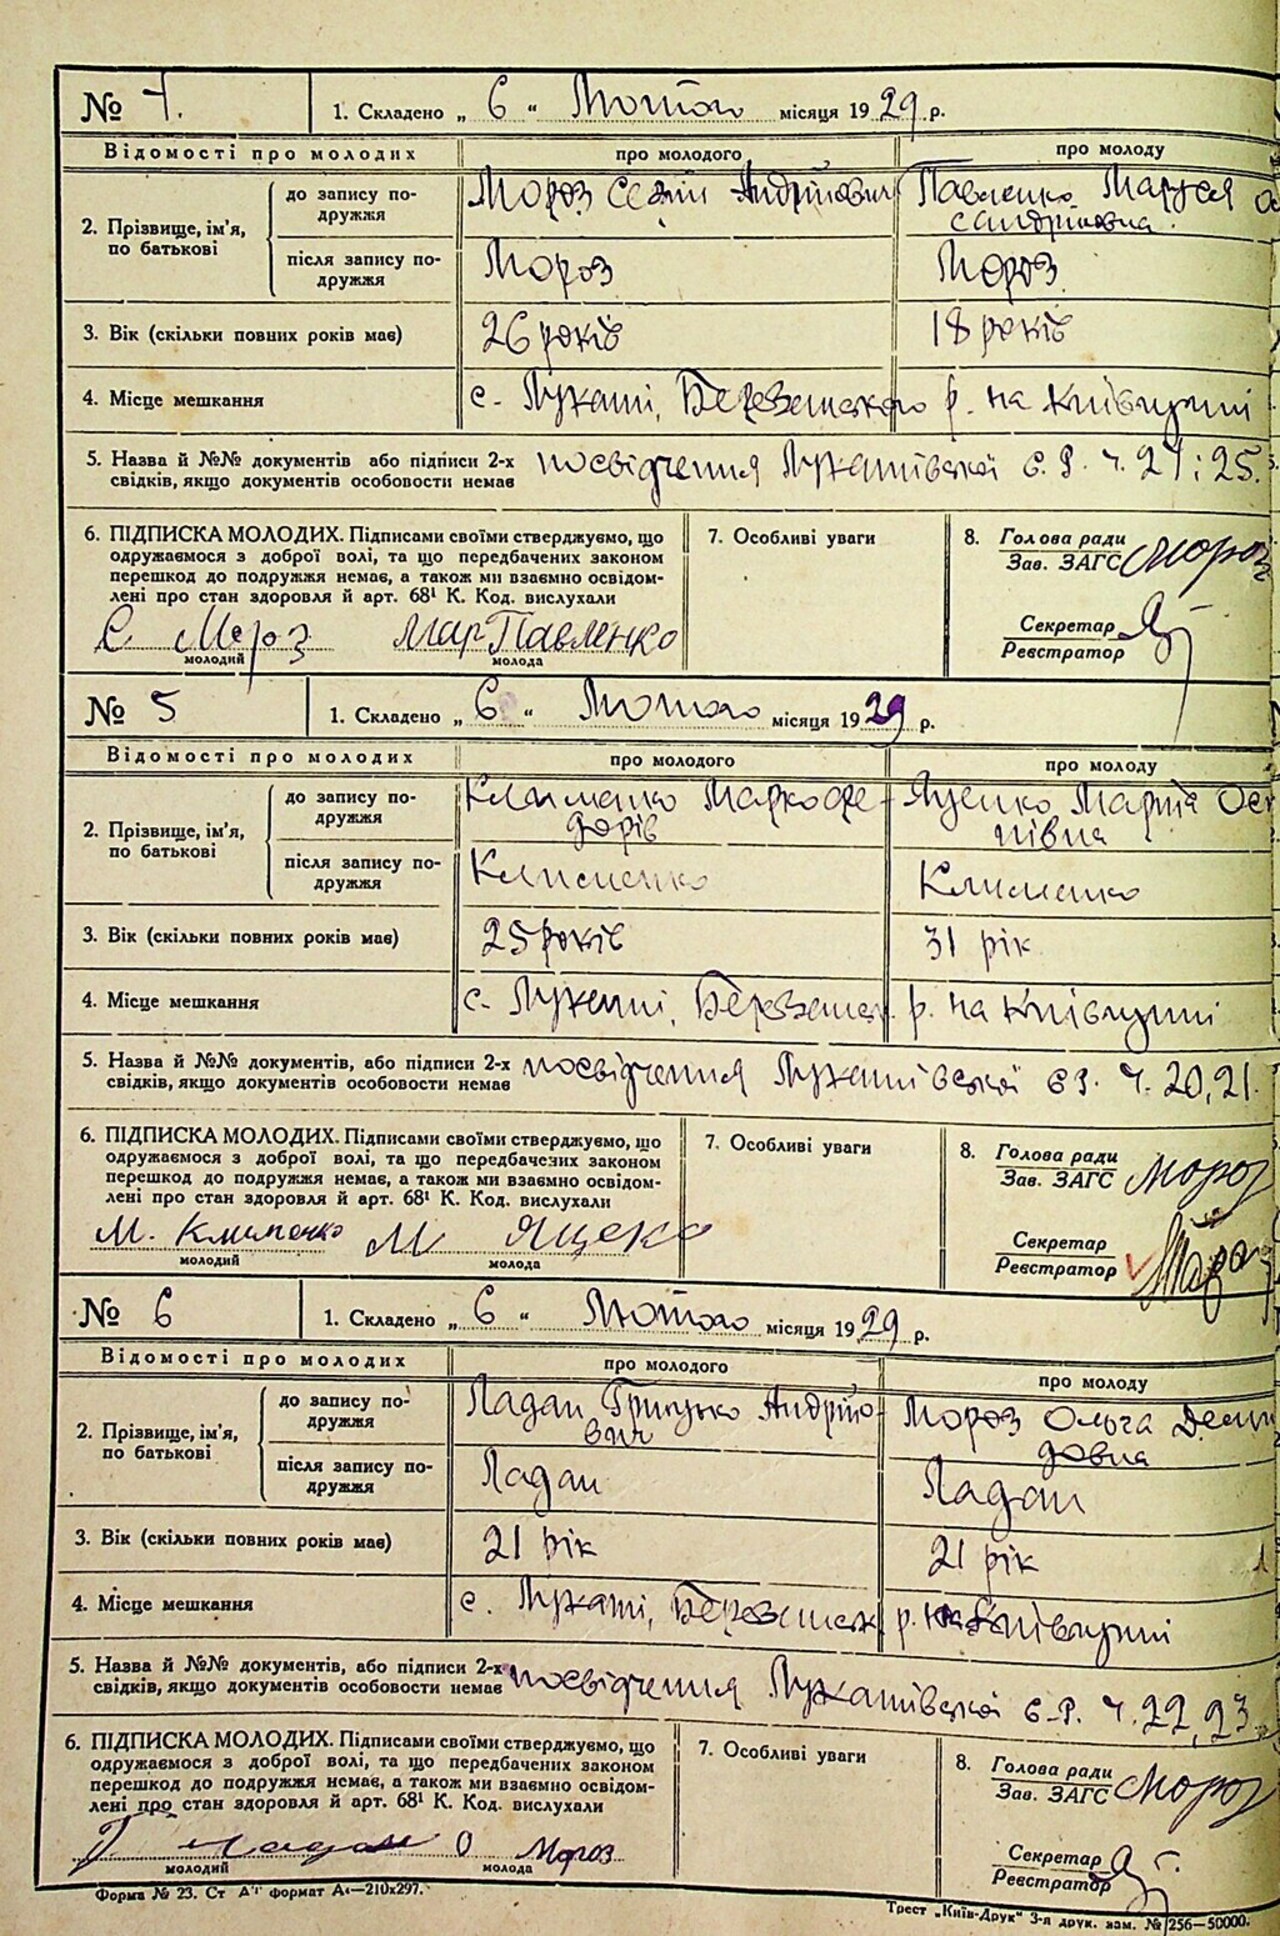 № 4. 1. Складено „ 6 “ Лютого місяця 1929 р.
Відомості про молодих про молодого про молоду
2. Прізвище, ім'я, по батькові
до запису подружжя Мороз Семен Андрійович Павленко Маруся
сандрівна.
після запису подружжя Мороз Мороз
3. Вік (скільки повних років має) 26 років 18 років
4. Місце мешкання с. Лукаші, Березанського р. на Київщині
5. Назва й №№ документів або підписи 2-х посвідчення Лукашівської с. Р. ч. 24 і 25.
свідків, якщо документів особовости немає
6. ПІДПИСКА МОЛОДИХ. Підписами своїми стверджуємо, що
одружаємося з доброї волі, та що передбачених законом
перешкод до подружжя немає, а також ми взаємно освідом-
лені про стан здоровля й арт. 68¹ К. Код. вислухали
С Мороз Мар Павленко
молодий молода
7. Особливі уваги
8. Голова ради Мороз
Зав. ЗАГС
Секретар
Реєстратор
№ 5 1. Складено „ 6 “ Лютого місяця 1929 р.
Відомості про молодих про молодого про молоду
2. Прізвище, ім'я, по батькові
до запису подружжя Клименко Марко Фе- Яценко Марія
дорів півна
після запису подружжя Клименко Клименко
3. Вік (скільки повних років має) 25 років 31 рік
4. Місце мешкання с. Лукаші, Березанськ. р. на Київщині
5. Назва й №№ документів, або підписи 2-х посвідчення Лукашівської с Р. ч. 20, 21.
свідків, якщо документів особовости немає
6. ПІДПИСКА МОЛОДИХ. Підписами своїми стверджуємо, що
одружаємося з доброї волі, та що передбачених законом
перешкод до подружжя немає, а також ми взаємно освідом-
лені про стан здоровля й арт. 68¹ К. Код. вислухали
М. Клименко М Яценко
молодий молода
7. Особливі уваги
8. Голова ради Мороз
Зав. ЗАГС
Секретар
Реєстратор
№ 6 1. Складено „ 6 “ Лютого місяця 1929 р.
Відомості про молодих про молодого про молоду
2. Прізвище, ім'я, по батькові
до запису подружжя Ладан Грицько Андрійо- Мороз Ольга Деми
вич довна
після запису подружжя Ладан Ладан
3. Вік (скільки повних років має) 21 рік 21 рік
4. Місце мешкання с. Лукаші, Березанськ р. на Київщині
5. Назва й №№ документів, або підписи 2-х посвідчення Лукашівської с-Р. ч. 22, 23.
свідків, якщо документів особовости немає
6. ПІДПИСКА МОЛОДИХ. Підписами своїми стверджуємо, що
одружаємося з доброї волі, та що передбачених законом
перешкод до подружжя немає, а також ми взаємно освідом-
лені про стан здоровля й арт. 68¹ К. Код. вислухали
Г Ладан О Мороз
молодий молода
7. Особливі уваги
8. Голова ради Мороз
Зав. ЗАГС
Секретар
Реєстратор
Форма № 23. Ст формат А₄—210x297.
Трест „Київ-Друк“ 3-я друк. зам. № 256—50000.